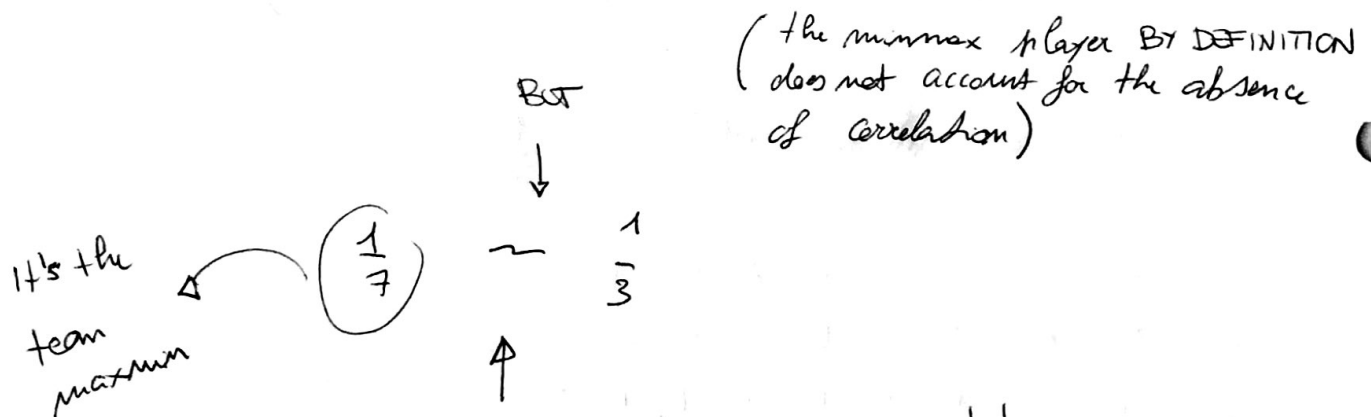 (the minmax player BY DEFINITION
does not account for the absence
of correlation)
BUT
It's the
team
maxmin
1/7 ~ 1/3